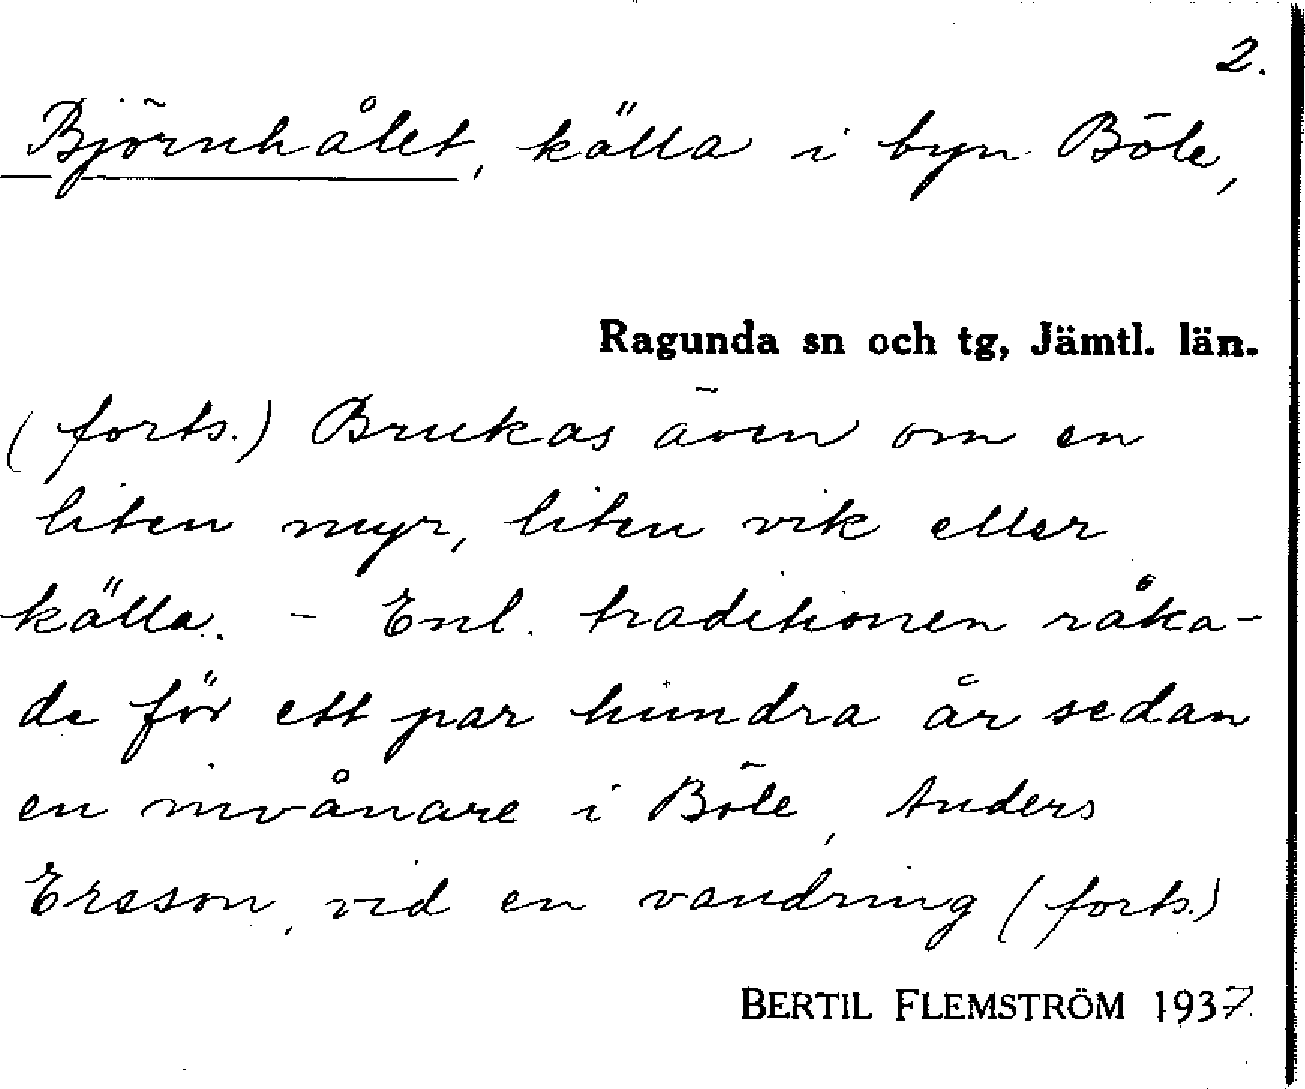 2.
Björnhålet, källa i byn Böle,
Ragunda sn och tg, Jämtl. län.
(forts.) Brukas även om en
liten myr, liten vik eller
källa. - Enl. traditionen råka-
de för ett par hundra år sedan
en invånare i Böle, Anders
Ersson, vid en vandring (forts.)
BERTIL FLEMSTRÖM 1937.